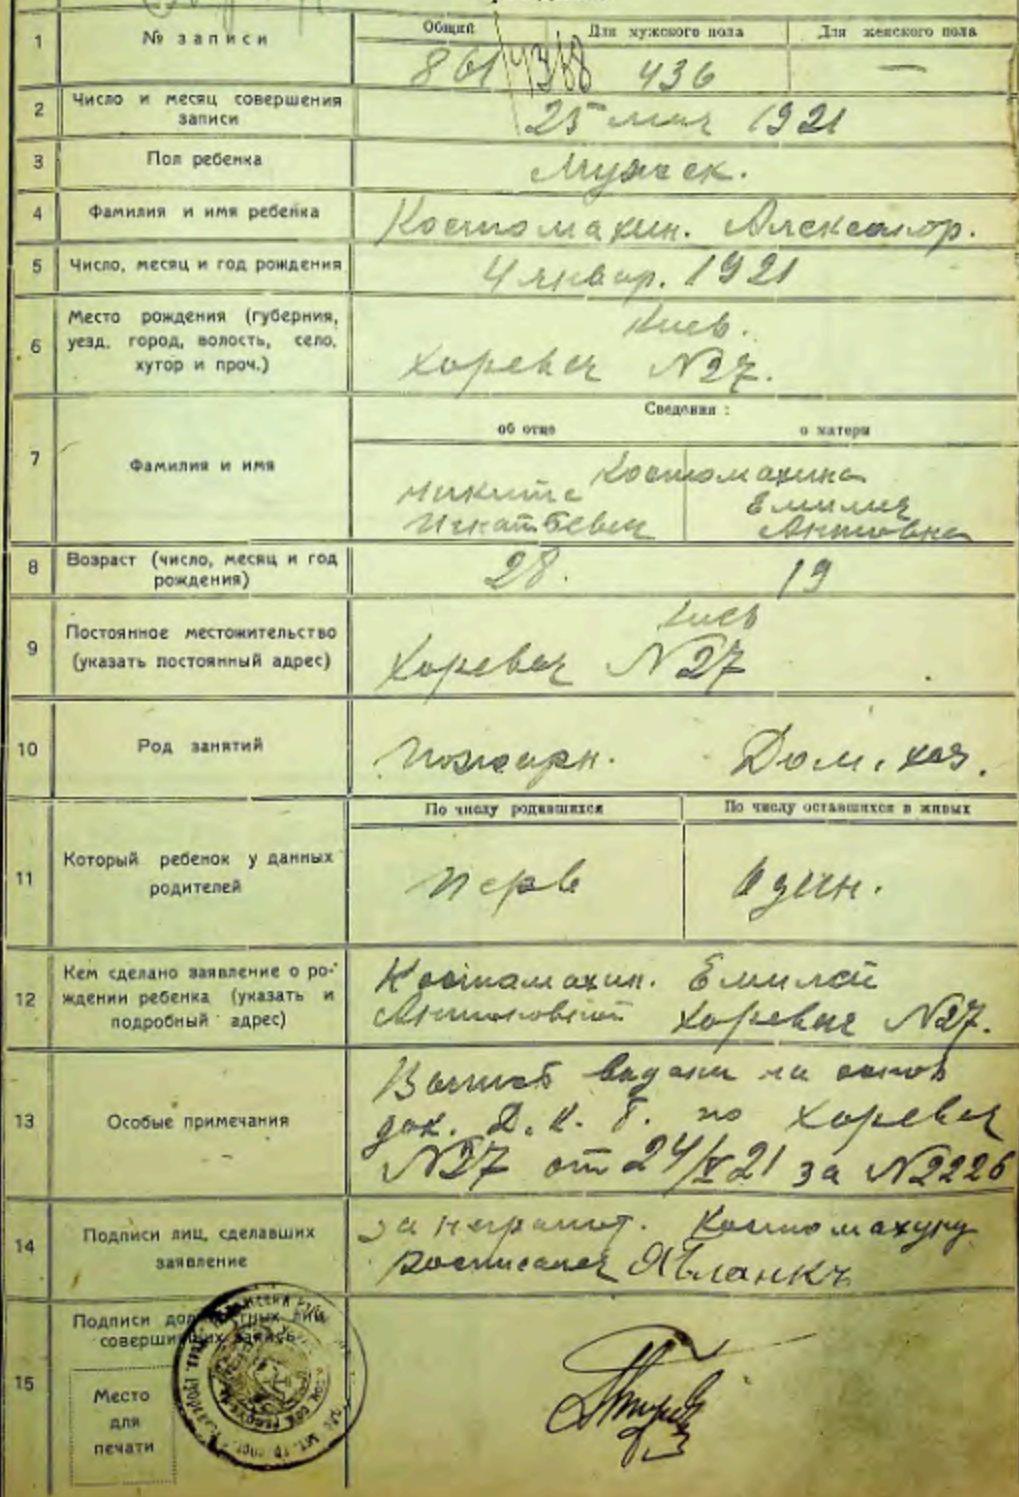 1
№ записи
Общий
Для мужского пола
Для женского пола
861
436
—
2
Число и месяц совершения
записи
25 мая 1921
3
Пол ребенка
Мужеск.
4
Фамилия и имя ребенка
Костомахин. Александр.
5
Число, месяц и год рождения
4 январ. 1921
6
Место рождения (губерния,
уезд, город, волость, село,
хутор и проч.)
Киев.
Хоревая №27.
7
Фамилия и имя
Сведения :
об отце
о матери
Костомахина
Никита
Игнатьевич
Емилия
Антовна
8
Возраст (число, месяц и год
рождения)
28.
19
9
Постоянное местожительство
(указать постоянный адрес)
Киев
Хоревая №27
10
Род занятий
Пожарн.
Дом. хоз.
11
Который ребенок у данных
родителей
По числу родившихся
По числу оставшихся в живых
Перв
Один.
12
Кем сделано заявление о ро-
ждении ребенка (указать и
подробный адрес)
Костамахин. Емилей
Хоревая №27.
13
Особые примечания
видани на основ
док. Д. К. Б. по Хоревая
№27 от 24/V 21 за №2226
14
Подписи лиц, сделавших
заявление
за неграмот. Костомахину
росписался
15
Подписи должностных лиц,
совершивших запись
Место
для
печати